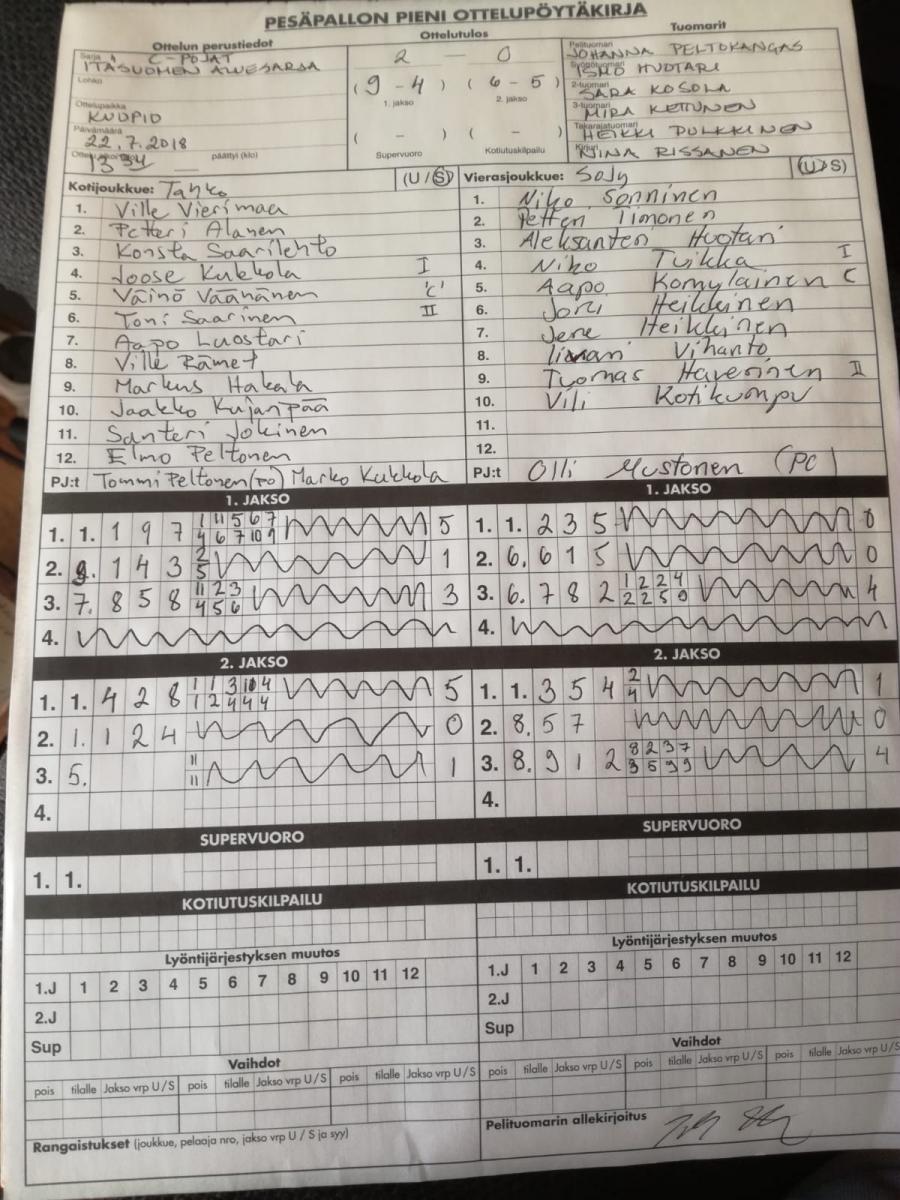 PESÄPALLON PIENI OTTELUPÖYTÄKIRJA
Ottelun perustiedot
Ottelutulos
Tuomarit
Sarja C-POJAT
ITÄSUOMEN ALUESARJA
Lohko
Ottelupaikka
KUOPIO
Päivämäärä
22.7.2018
päättyi (klo)
2 – 0
( 9 – 4 ) ( 6 – 5 )
1. jakso 2. jakso
( – ) ( – )
Supervuoro Kotiutuskilpailu
Pelituomari
JOHANNA PELTOKANGAS
Syöttötuomari
ISMO HUOTARI
2-tuomari
SARA KOSOLA
3-tuomari
MIRA KETTUNEN
Takarajatuomari
HEIKKI PULKKINEN
Kirjuri
NINA RISSANEN
Kotijoukkue: Tahko (U / S)
1. Ville Vierimaa
2. Petteri Alanen
3. Konsta Saarilehto
4. Joose Kukkola I
5. Väinö Väänänen 'C'
6. Toni Saarinen II
7. Aapo Luostari
8. Ville Rämet
9. Markus Hakala
10. Jaakko Kujanpää
11. Santeri Jokinen
12. Elmo Peltonen
PJ:t Tommi Peltonen (PJ) Marko Kukkola
Vierasjoukkue: SoJy (U / S)
1. Niko Sonninen
2. Petteri Timonen
3. Aleksanteri Huotari
4. Niko Tuikka I
5. Aapo Komulainen C
6. Joni Heikkinen
7. Jere Heikkinen
8. Vihanto
9. Tuomas Haverinen II
10. Vili Kotikumpu
11.
12.
PJ:t Olli Mustonen (PC)
1. JAKSO
1. 1. 1 9 7 1 11 5 6 7 5
4 6 7 10 9
2. 9. 1 4 3 2 1
5
3. 7. 8 5 8 11 2 3 3
4 5 6
4.
2. JAKSO
1. 1. 4 2 8 1 1 3 10 4 5
1 2 4 4 4
2. 1. 1 2 4 0
3. 5. 11 1
11
4.
SUPERVUORO
1. 1.
KOTIUTUSKILPAILU
Lyöntijärjestyksen muutos
1.J 1 2 3 4 5 6 7 8 9 10 11 12
2.J
Sup
Vaihdot
pois tilalle Jakso vrp U / S pois tilalle Jakso vrp U / S pois tilalle Jakso vrp U / S
Rangaistukset (joukkue, pelaaja nro, jakso vrp U / S ja syy)
1. JAKSO
1. 1. 2 3 5 0
2. 6. 6 1 5 0
3. 6. 7 8 2 1 2 2 4 4
2 2 5 9
4.
2. JAKSO
1. 1. 3 5 4 2 1
4
2. 8. 5 7 0
3. 8. 9 1 2 8 2 3 7 4
3 5 9 9
4.
SUPERVUORO
1. 1.
KOTIUTUSKILPAILU
Lyöntijärjestyksen muutos
1.J 1 2 3 4 5 6 7 8 9 10 11 12
2.J
Sup
Vaihdot
pois tilalle Jakso vrp U / S pois tilalle Jakso vrp U / S pois tilalle Jakso vrp U / S
Pelituomarin allekirjoitus